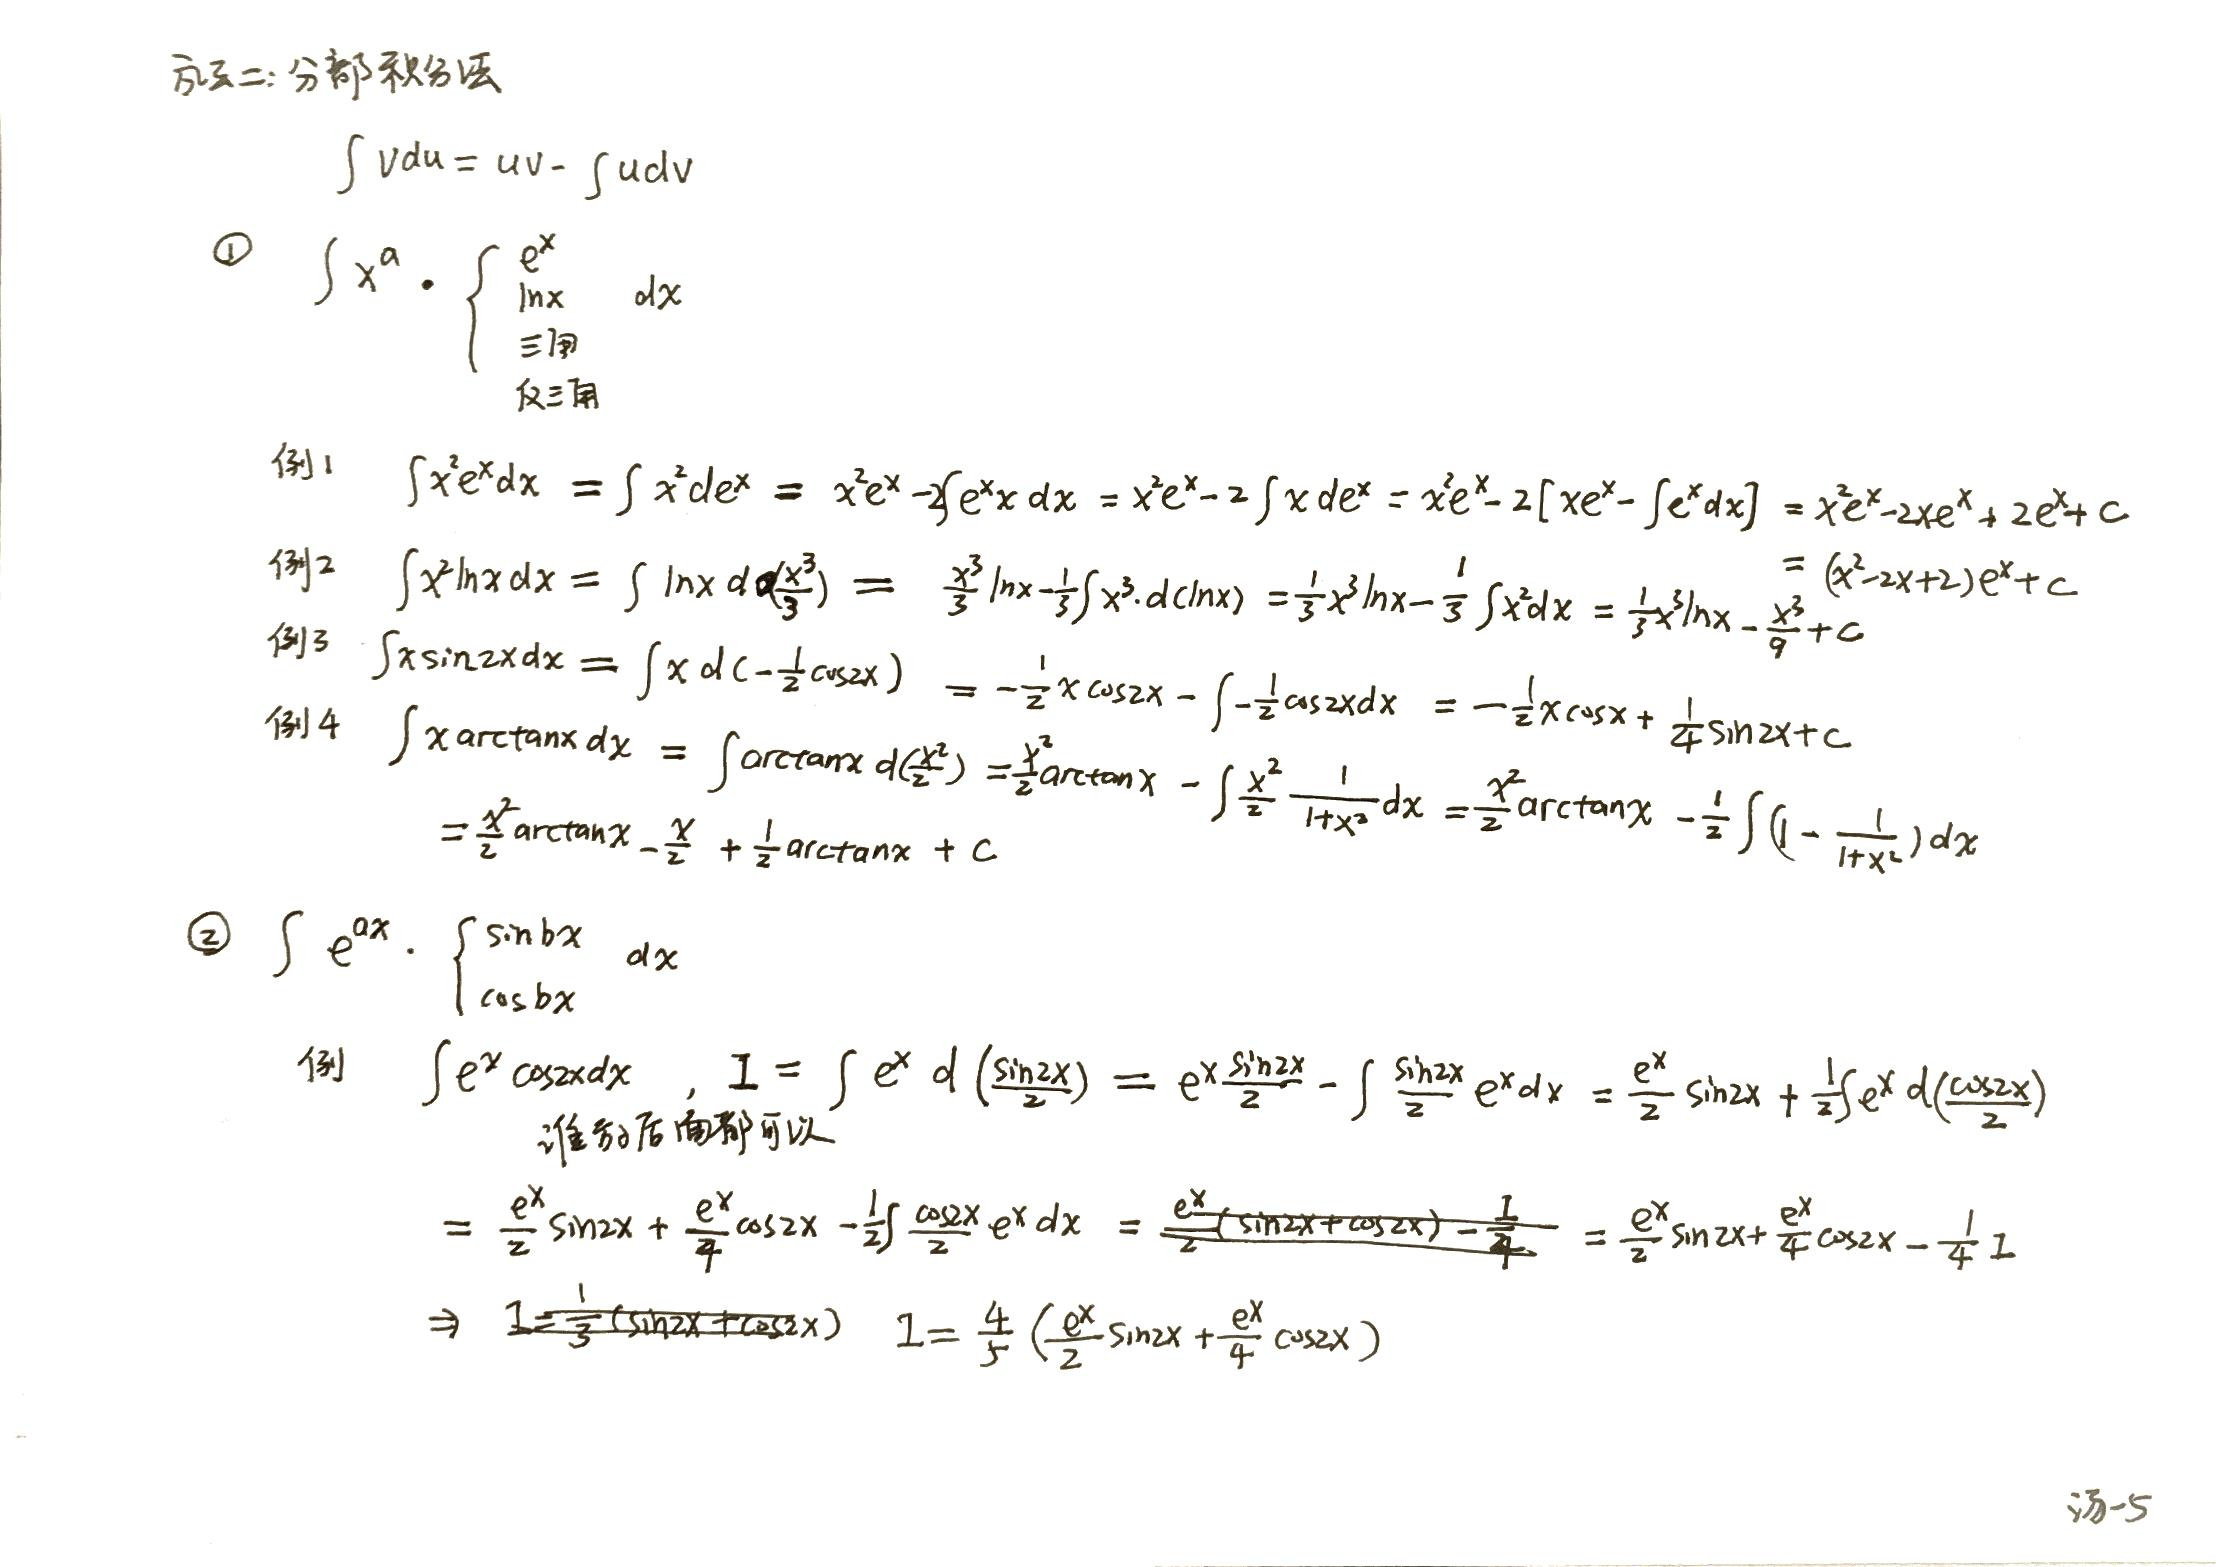 方法二：分部积分法
∫vdu = uv - ∫udv
① ∫x^a · { e^x
lnx dx
三角
反三角
例1 ∫x²e^xdx = ∫x²de^x = x²e^x - 2∫e^x x dx = x²e^x - 2∫x de^x = x²e^x - 2[xe^x - ∫e^xdx] = x²e^x - 2xe^x + 2e^x + C
= (x²-2x+2)e^x + C
例2 ∫x²lnxdx = ∫lnx d(x³/3) = x³/3 lnx - 1/3∫x³·d(lnx) = 1/3 x³lnx - 1/3∫x²dx = 1/3 x³lnx - x³/9 + C
例3 ∫xsin2xdx = ∫x d(-1/2 cos2x) = -1/2 x cos2x - ∫-1/2 cos2xdx = -1/2 x cosx + 1/4 sin2x + C
例4 ∫x arctanx dx = ∫arctanx d(x²/2) = x²/2 arctanx - ∫x²/2 1/(1+x²) dx = x²/2 arctanx - 1/2∫(1 - 1/(1+x²))dx
= x²/2 arctanx - x/2 + 1/2 arctanx + C
② ∫e^ax · { sinbx dx
cosbx
例 ∫e^x cos2xdx , I = ∫e^x d(sin2x/2) = e^x sin2x/2 - ∫sin2x/2 e^xdx = e^x/2 sin2x + 1/2∫e^x d(cos2x/2)
谁放后面都可以
= e^x/2 sin2x + e^x/4 cos2x - 1/2∫cos2x/2 e^x dx = e^x/2 (sin2x+cos2x) - I/4 = e^x/2 sin2x + e^x/4 cos2x - 1/4 I
⇒ I = 1/3 (sin2x+cos2x) I = 4/5 (e^x/2 sin2x + e^x/4 cos2x)
汤-5